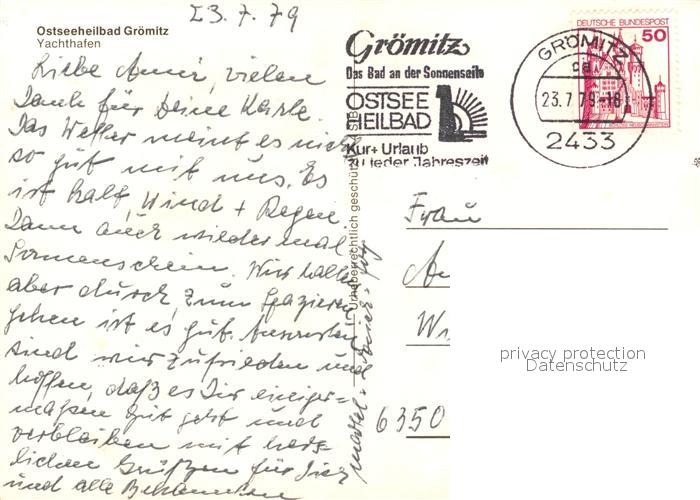 23.7.79
Ostseeheilbad Grömitz
Yachthafen
Liebe Anni, vielen
Dank für Deine Karte.
Das Wetter meint es nicht
so gut mit uns. Es
ist kalt, Wind + Regen
Dann auch wieder mal
Sonnenschein. Wir halten
aber durch, zum Spazieren
gehen ist es gut. Ansonsten
sind wir zufrieden und
hoffen, daß es Dir einiger-
maßen gut geht und
verbleiben mit herz-
lichen Grüßen für Dich
und alle Bekannten
Urheberrechtlich geschützt
Grömitz
Das Bad an der Sonnenseite
OSTSEE
HEILBAD
Kur+ Urlaub
zu jeder Jahreszeit
GRÖMITZ
23.7.79-18
2433
DEUTSCHE BUNDESPOST
50
Frau
An
Wi
6350
privacy protection
Datenschutz